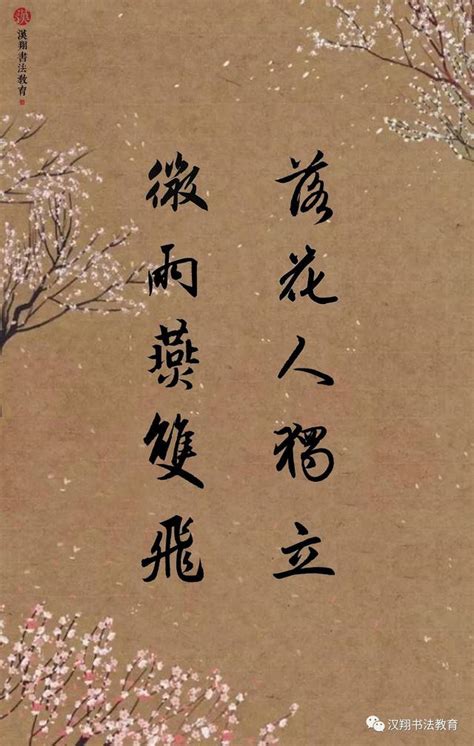 漢翔書法教育
落花人獨立
微雨燕雙飛
汉翔书法教育